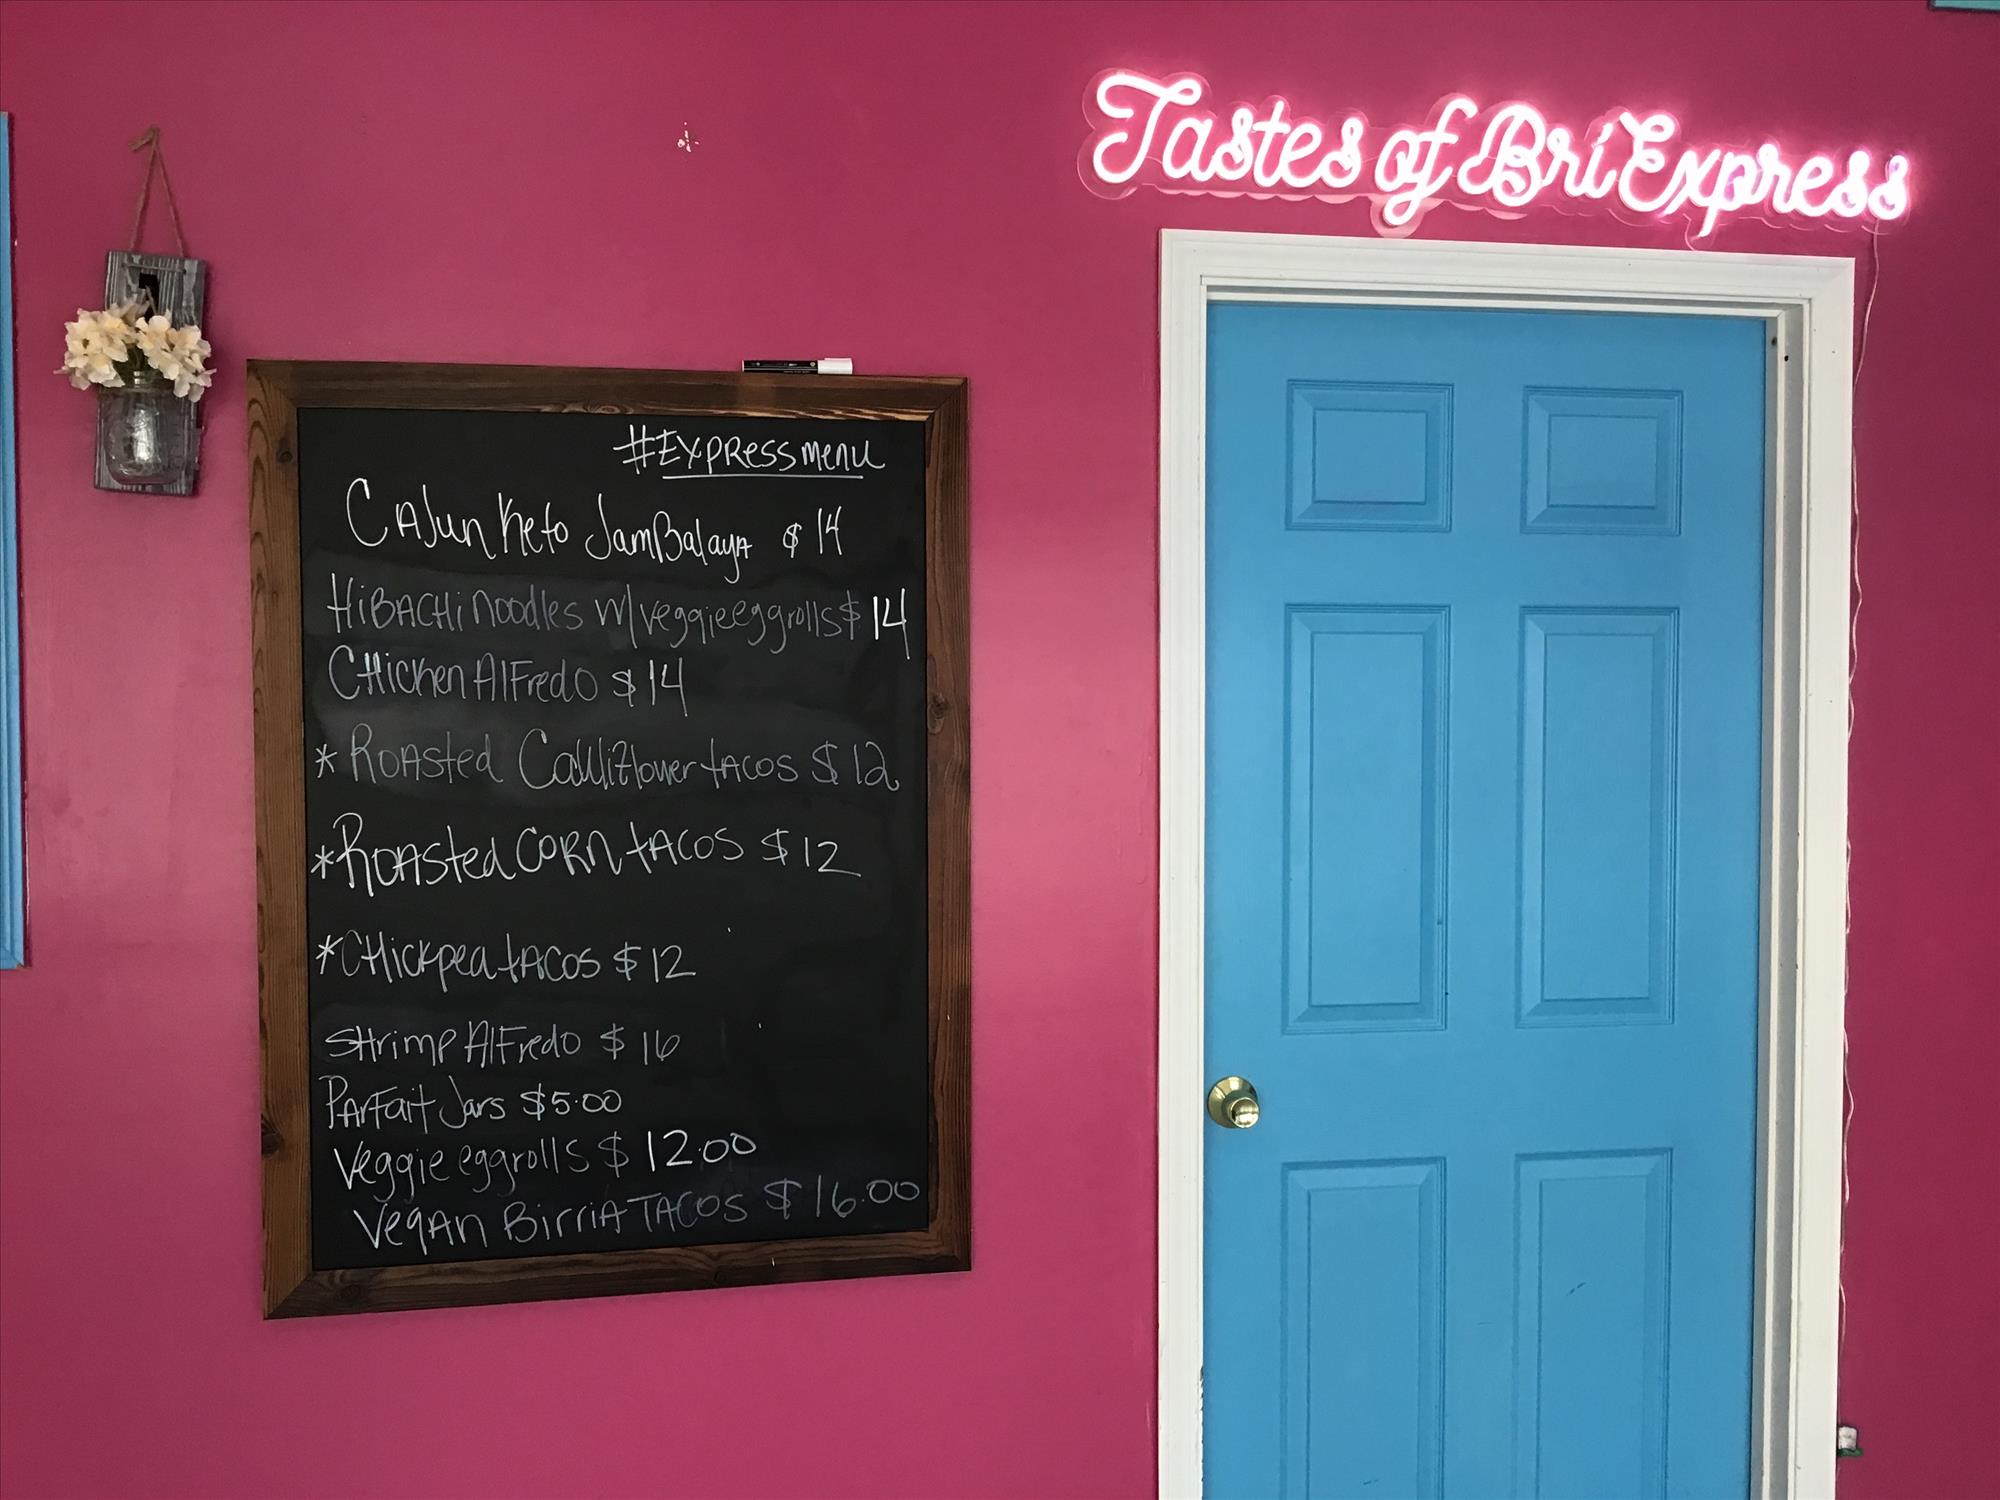 Tastes of Bri Express
#Express menu
Cajun Keto Jambalaya $14
Hibachi noodles w/veggie eggrolls $14
Chicken Alfredo $14
* Roasted Cauliflower tacos $12
* Roasted Corn tacos $12
* Chickpea tacos $12
Shrimp Alfredo $16
Parfait Jars $5.00
Veggie eggrolls $12.00
Vegan Birria Tacos $16.00